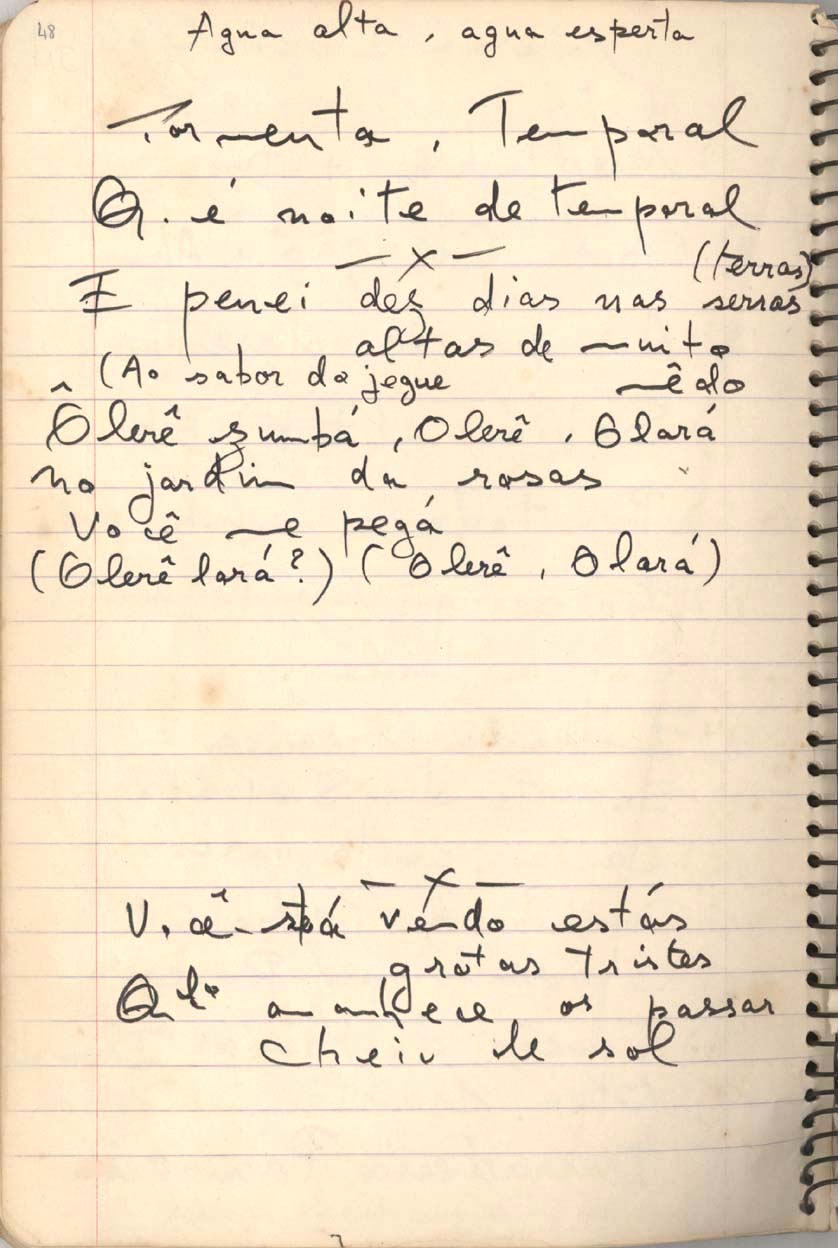 48
Agua alta, agua esperta
Tormenta, Temporal
Q. é noite de temporal
— x —
(terras)
E penei dez dias nas serras
altas de muito
(Ao sabor da jegue mêdo
Ôlerê zumbá, Olerê, Olará
no jardim da rosas
Você me pegá
(Olerê lará?) (Olerê, Olará)
— x —
Você vendo estás
grotas tristes
amanhece os passar
cheiu de sol